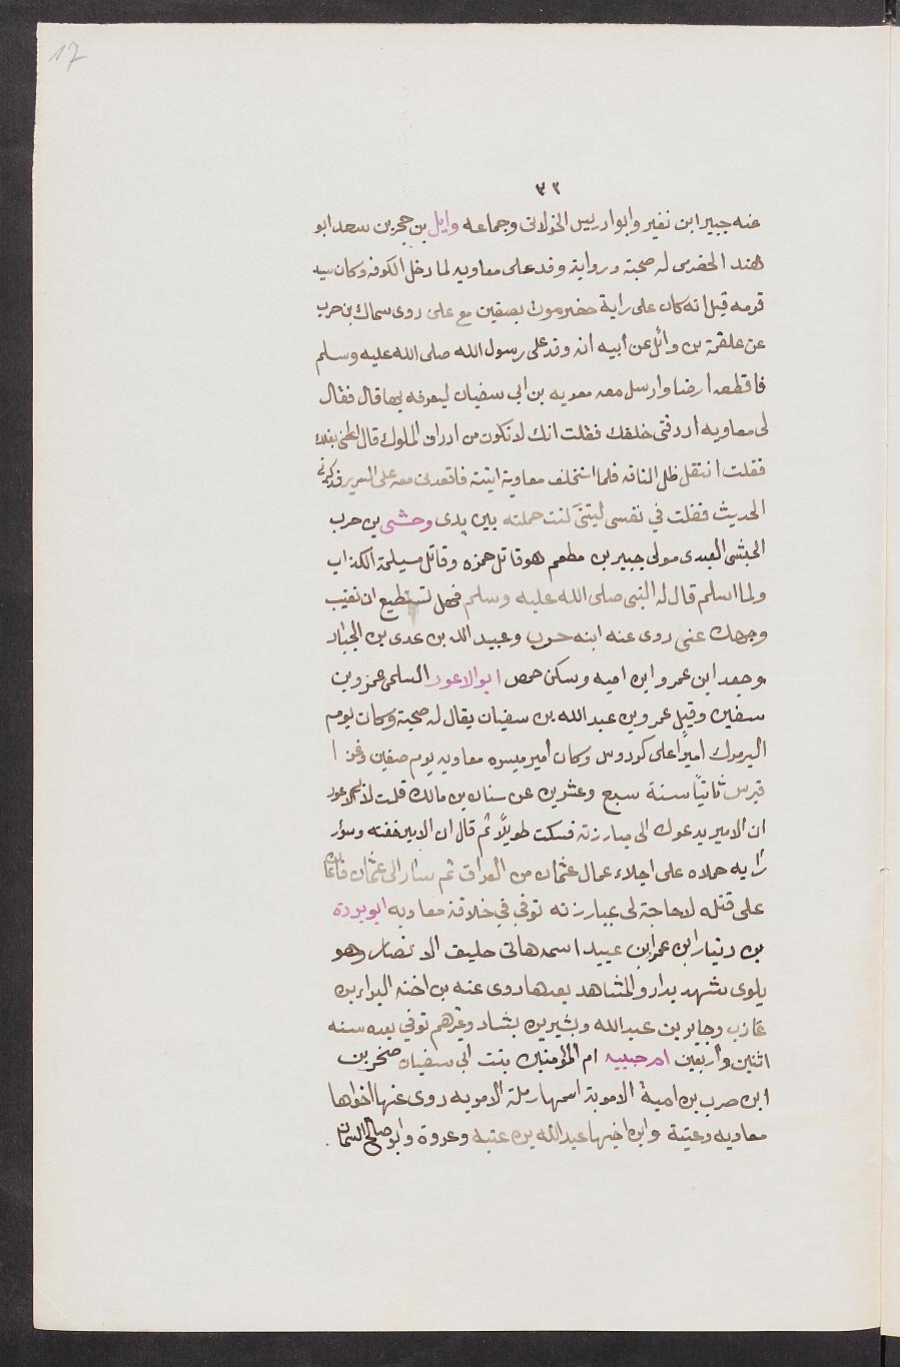 17
٣٢
عنه جبير ابن نفير وابوادريس الخولانى وجماعه وايل بن حجر بن سعد ابو
هند الحضرمى له صحبة ورواية وفد على معاويه لما دخل الكوفه وكان سيد
قومه قيل انه كان على راية حضرموت بصفين مع على روى سماك بن حرب
عن علقمة بن وائل عن أبيه انه وفد على رسول الله صلى الله عليه وسلم
فاقطعه ارضا وارسل معه معويه بن ابى سفيان ليعرفه بها قال فقال
لى معاويه اردفنى خلفك فقلت انك لا تكون من ارداف الملوك قال اعطنى نعلك
فقلت انتقل ظل الناقه فلما استخلف معاوية اتيته فاقعدنى معه على السرير فذكرنى
الحديث فقلت في نفسى ليتنى كنت حملته بين يدى وحشى بن حرب
الحبشى العبدى مولى جبير بن مطعم هو قاتل حمزه وقاتل مسيلمة الكذاب
ولما اسلم قال له النبى صلى الله عليه وسلم فهل تستطيع ان تغيب
وجهك عنى روى عنه ابنه حرب وعبيد الله بن عدى بن الخيار
وجعد ابن عمرو ابن اميه وسكن حمص ابوالاعور السلمى عمرو بن
سفين وقيل عمرو بن عبد الله بن سفيان يقال له صحبة وكان يوم
اليرموك اميرًا على كردوس وكان امير ميسره معاويه يوم صفين وغزا
قبرس ثانيًا سنة سبع وعشرين عن سنان بن مالك قلت لابى الاعور
ان الامير يدعوك الى مبارزته فسكت طويلًا ثم قال ان الاشتر خفته وسؤ
رايه حملاه على اجلاء عمال عثمان من العراق ثم سار الى عثمان فاعان
على قتله لا حاجة لى بمبارزته توفي في خلافة معاويه ابوبردة
بن دينار ابن عمرابن عبيد اسمه هانى حليف الانصار وهو
بلوى شهد بدار والمشاهد بعدها روى عنه بن اخته البراء بن
عازب وجابر بن عبدالله وبشير بن بشار وغيرهم توفي بعده سنه
اثنين واربعين ام حبيبه ام المؤمنين بنت ابى سفيان صخر بن
ابن حرب بن امية الاموية اسمها رملة الامويه روى عنها اخواها
معاويه وعتبة وابن اخيها عبدالله بن عتبه وعروة وابو صالح السمان